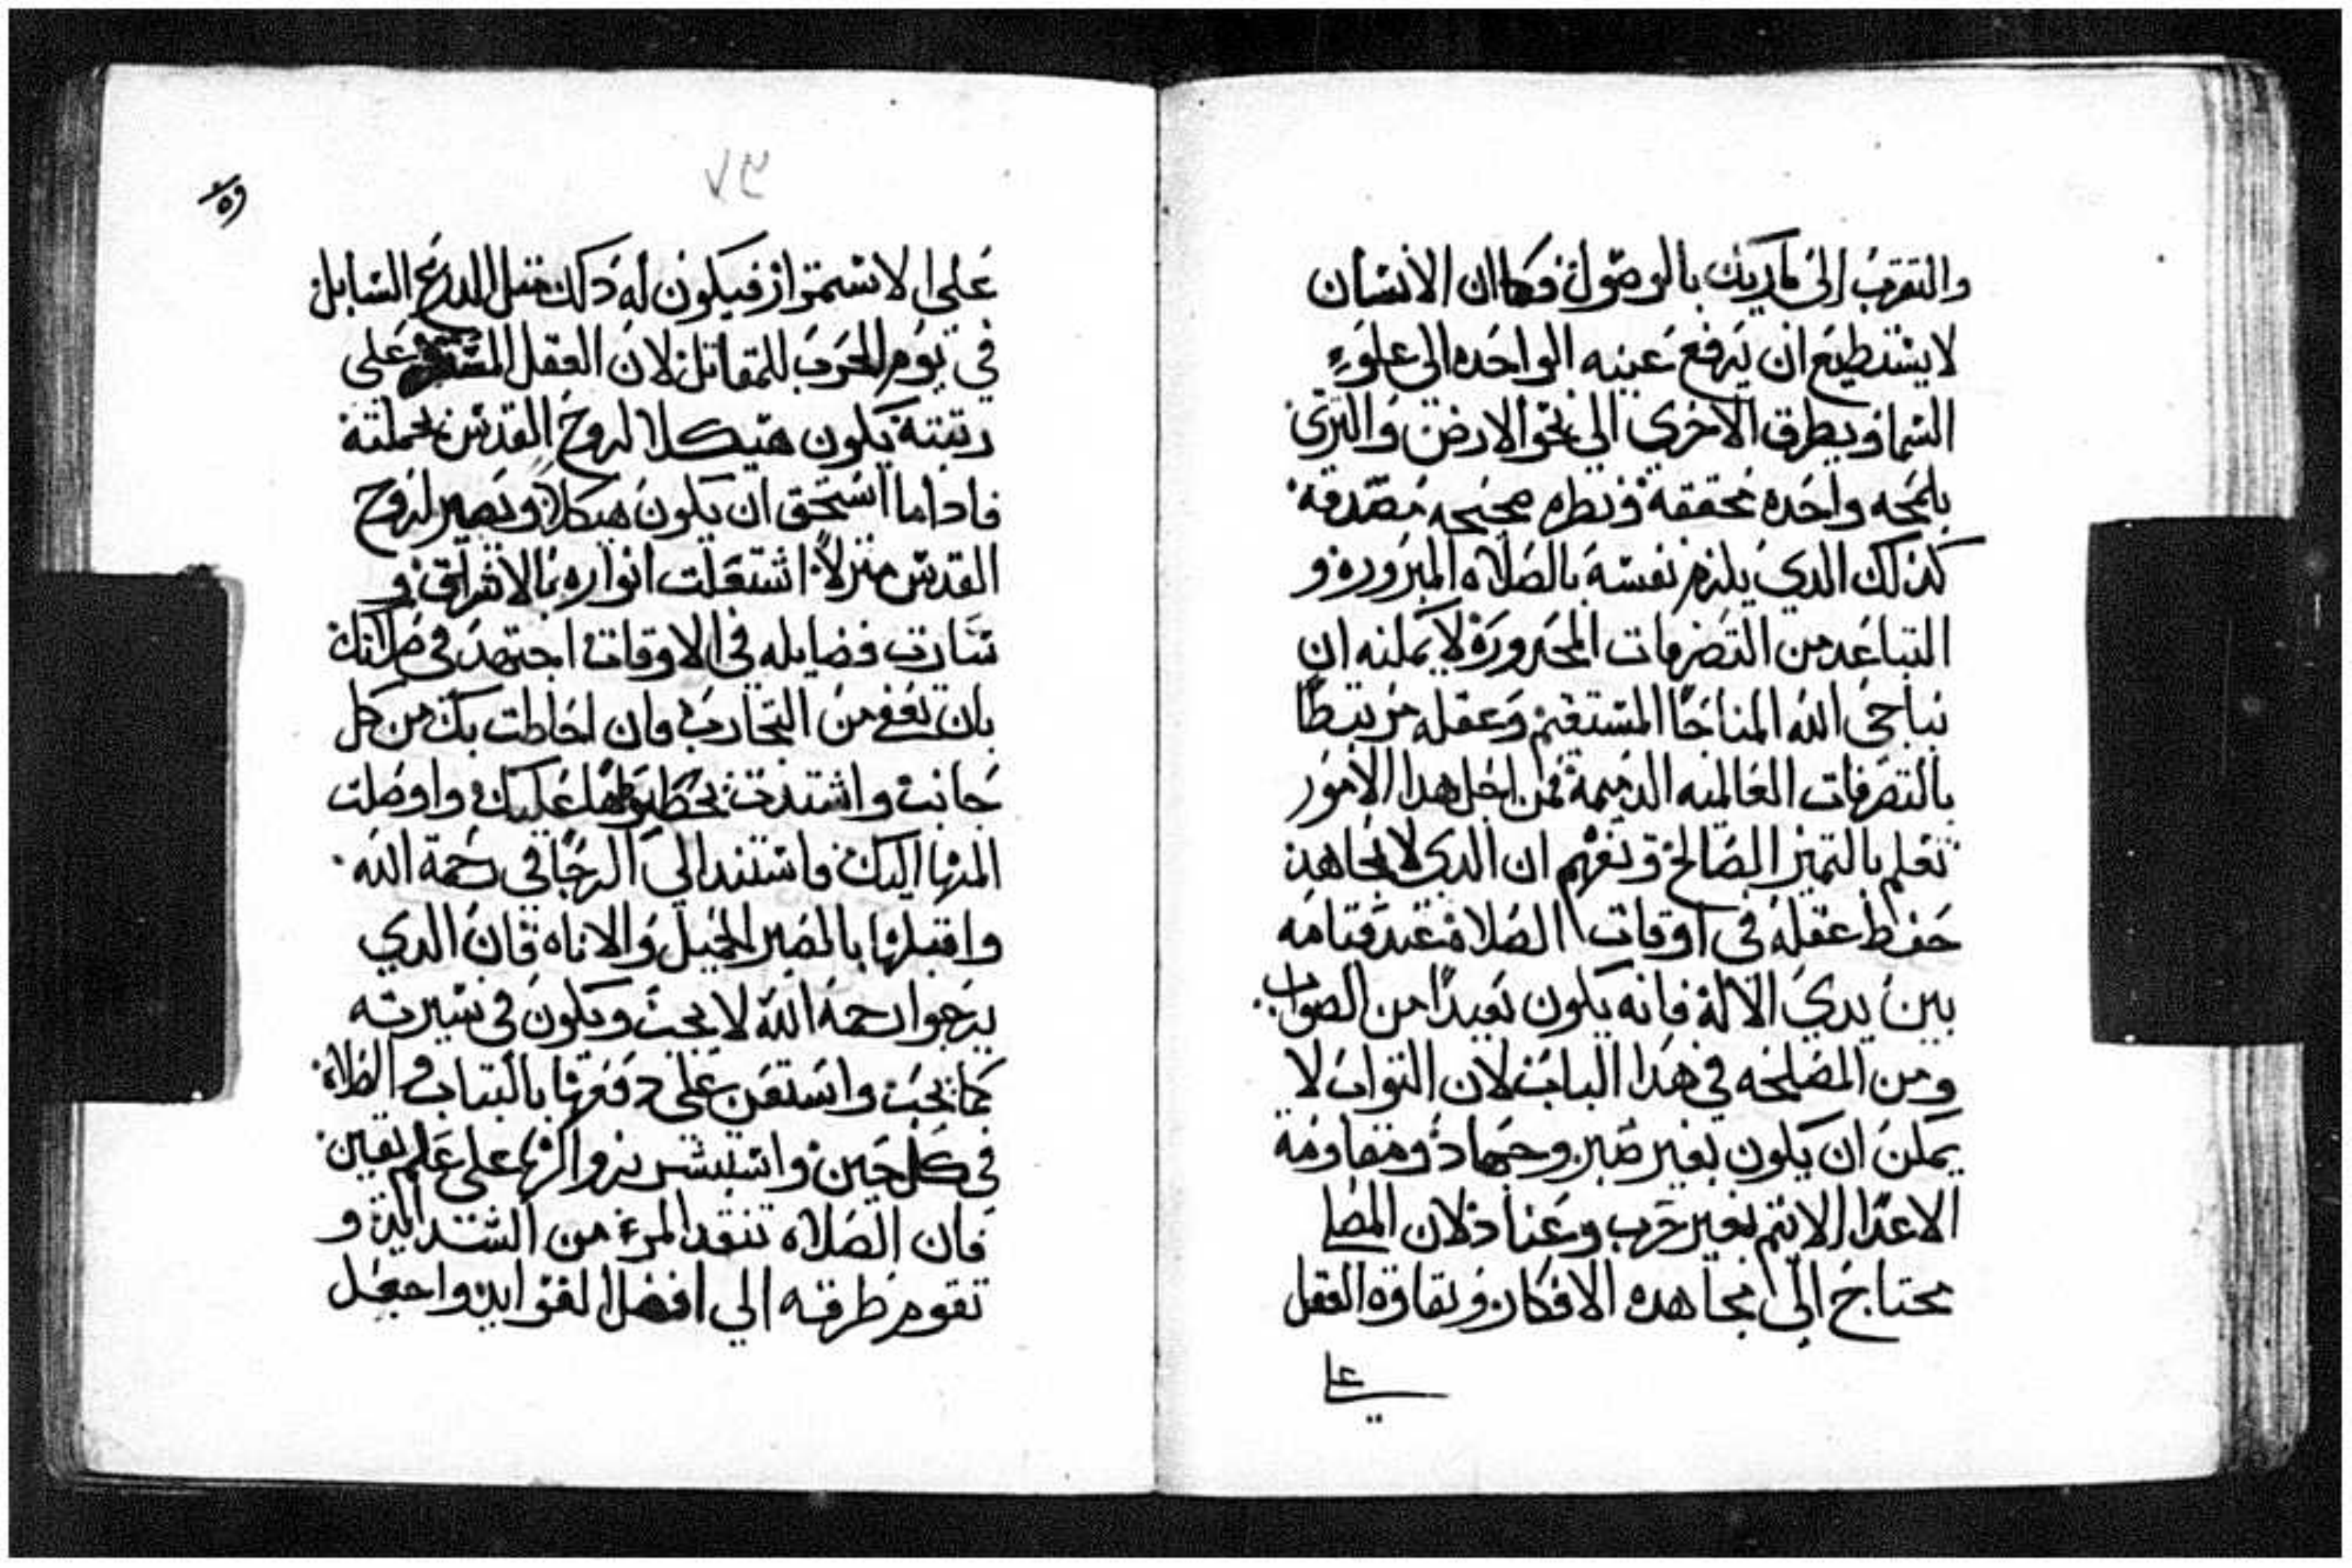 والتقرب الى لدنك بالوصول وكما ان الانسان
لا يستطيع ان يرفع عينه الواحده الى علوء
السما ويطرق الاخرى الي نحو الارض والترى
بلمحه واحده محققة ونطره صحيحه مصدقه
كذلك الدي يلزم نفسه بالصلاه المبروره و
التباعد من التصرفات المحدورة لا يمكنه ان
يناجى الله المناجا المستقيم وعقله مرتبطا
بالتصرفات العالميه الدميمة فمن اجل هدا الامور
تعلم بالتميز الصالح وتفهم ان الدي لا يجاهد
حفط عقله في اوقات الصلاة عند قيامه
بين يدي الآله فانه يكون بعيدا من الصواب
ومن المصلحه في هدا الباب لان التواب لا
يمكن ان يكون بغير صبر وجهاد ومقاومة
الاعدا لا تتم بغير حرب وعناد لان المصلي
محتاج الى مجاهده الافكار ونقاوة العقل
علي
٧٣
على الاستمرار فيكون له دلك متل الدرع السابل
في يوم الحرب للمقاتل لان العقل على
رتبته يكون هيكلا لروح القدس بحملته
فاداما استحق ان يكون هيكلا ويصير لروح
القدس منزلا اشتعلت انواره بالاشراق و
سارت فضايله في الاوقات اجتهد في صلاتك
بان تعفي من التجارب وان احاطت بك من كل
جانب واشتدت عليك واوصلت
المها اليك فاستند الي الرجا في رحمة الله
واقبلها بالصبر الجميل والاناه فان الدي
يرجوا رحمة الله لا يجب ويكون في سيرته
كما يجب واستعن على دفعها بالتبات و الصلاة
في كل حين واستبشر بزوالها على علم يقين
فان الصلاه تنقد المرء من الشدايد و
تقوم طرقه الي افضل الفوايد واجعل